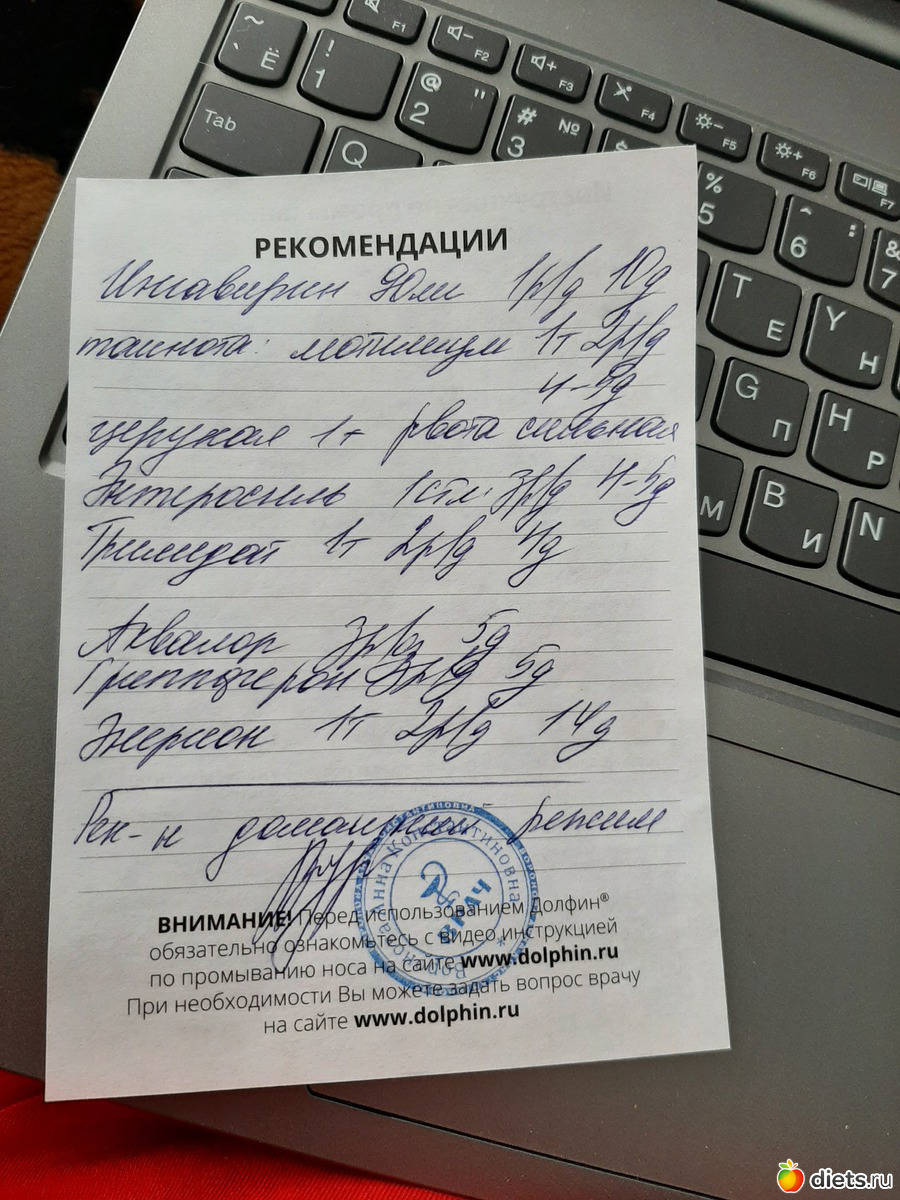 ~
` Ё
!
1
@ "
2
# №
3
%
5
^ :
6
&
7
F1
F2
F3
F4
F5
F6
F7
Tab
Q
T Е
Y Н
G П
H Р
М
B И
N
РЕКОМЕНДАЦИИ
Ингавирин 90мг 1р/д 10д
тошнота: мотилиум 1т 2р/д
4-5д
церукал 1т рвота сильная
Энтеросгель 1 ст.л. 3р/д 4-5д
Тримедат 1т 2р/д 4д
Аквалор 3р/д 5д
Гриппферон 3р/д 5д
1т 2р/д 14д
Рек-н домашний режим
Анна Константиновна
ВРАЧ
ВНИМАНИЕ! Перед использованием Долфин®
обязательно ознакомьтесь с видео инструкцией
по промыванию носа на сайте www.dolphin.ru
При необходимости Вы можете задать вопрос врачу
на сайте www.dolphin.ru
diets.ru